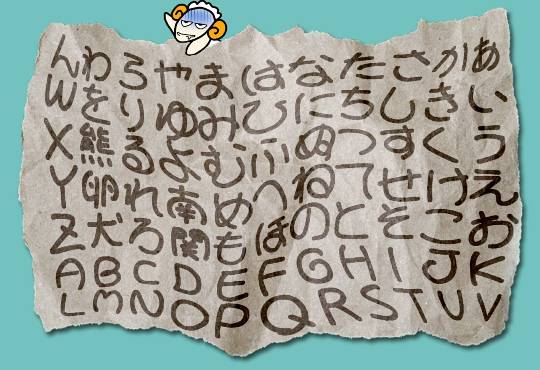 あいうえお
かきくけこ
さしすせそ
たちつてと
なにぬねの
はひふへほ
まみむめも
やゆよ南関
らりるれろ
わを熊卵犬
んWXYZ
ABCDEFGHIJK
LMNOPQRSTUV